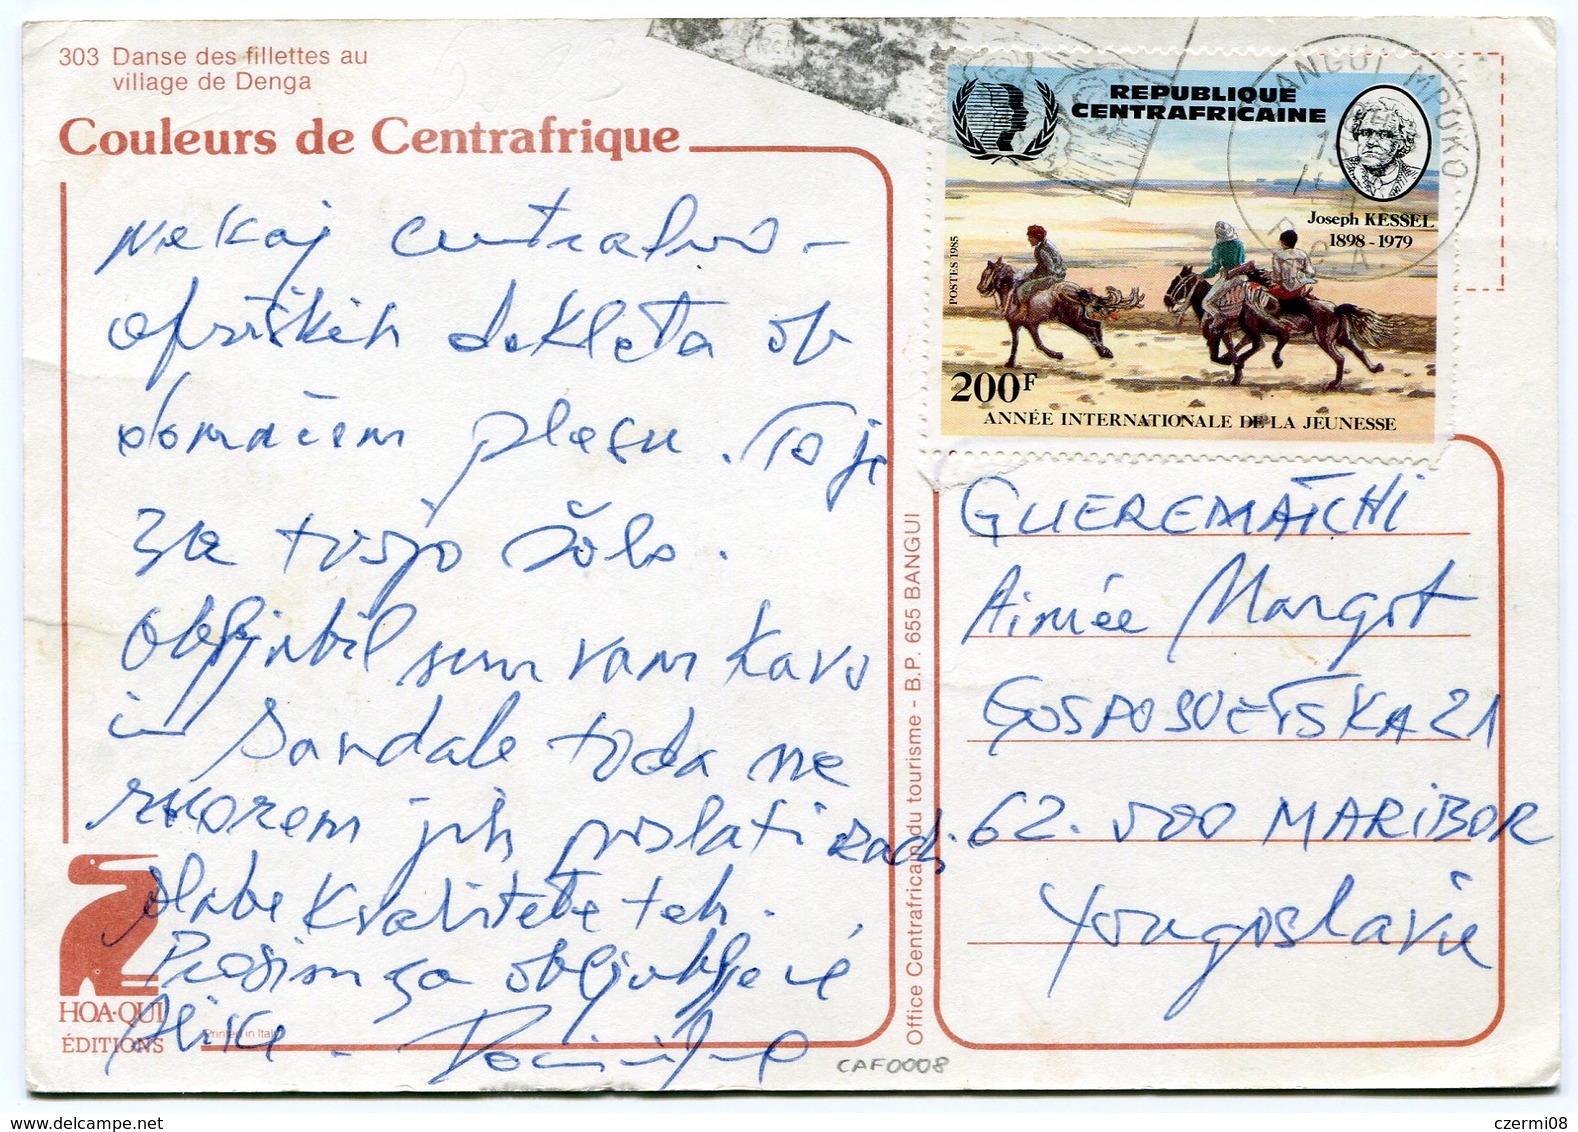 303 Danse des fillettes au
village de Denga
Couleurs de Centrafrique
Nekaj centralno-
afriških dekleta ob
domačem plesu. To je
za tvojo šolo.
Obljubil sem vam kavo
in sandale toda ne
morem jih poslati radi
slabe kvalitete teh.
Prosim za obljubljene
slike.
HOA-QUI
ÉDITIONS
Printed in Italy
Office Centrafricain du tourisme - B.P. 655 BANGUI
REPUBLIQUE
CENTRAFRICAINE
Joseph KESSEL
1898-1979
POSTES 1985
200F
ANNÉE INTERNATIONALE DE LA JEUNESSE
BANGUI MPOKO
GUEREMATCHI
Aimée Margot
GOSPOSVETSKA 21
62.000 MARIBOR
Yougoslavie
CAF0008
www.delcampe.net
czermi08